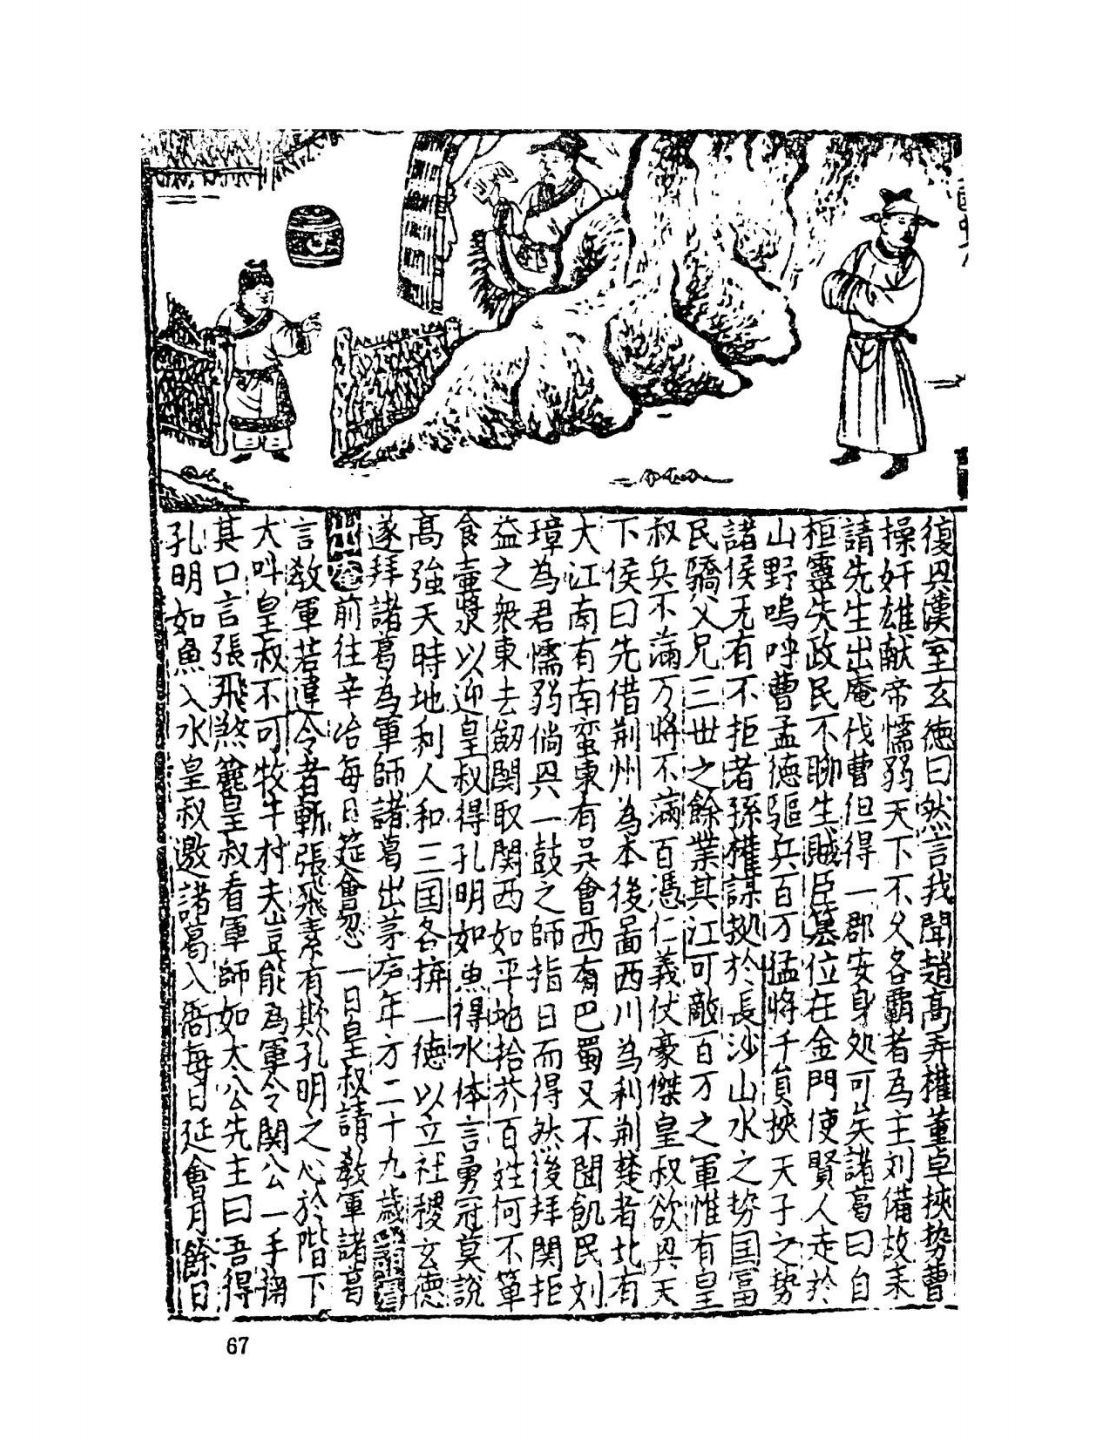 復兴漢室玄徳曰然言我聞趙高弄權董卓挾势曹
操奸雄献帝懦弱天下不久各霸者為主刘備故来
請先生出庵伐曹但得一郡安身处可矣諸葛曰自
桓靈失政民不聊生賊臣篡位在金門使賢人走於
山野嗚呼曹孟徳驅兵百万猛将千貟挾天子之势
諸侯无有不拒者孫權謀拠於長沙山水之势国富
民驕父兄三世之餘業其江可敵百万之軍惟有皇
叔兵不滿万将不滿百憑仁義仗豪傑皇叔欲兴天
下侯曰先借荆州為本後啚西川為利荆楚者北有
大江南有南蛮東有吴會西有巴蜀又不閏飢民刘
璋為君懦弱倘兴一鼓之師指日而得然後拜関拒
益之衆東去劒関取関西如平地拾芥百姓何不箪
食壷漿以迎皇叔得孔明如魚得水体言勇冠莫說
髙強天時地利人和三国各拚一徳以立社稷玄徳
遂拜諸葛為軍師諸葛出茅庐年方二十九歳
出庵前往辛冶每日筵會忽一日皇叔請教軍諸葛
言教軍若違令者斬張飛素有欺孔明之心於階下
大呌皇叔不可牧牛村夫豈能為軍令関公一手掬
其口言張飛煞䕶皇叔看軍師如太公先主曰吾得
孔明如魚入水皇叔邀諸葛入衙每日延會月餘日
67